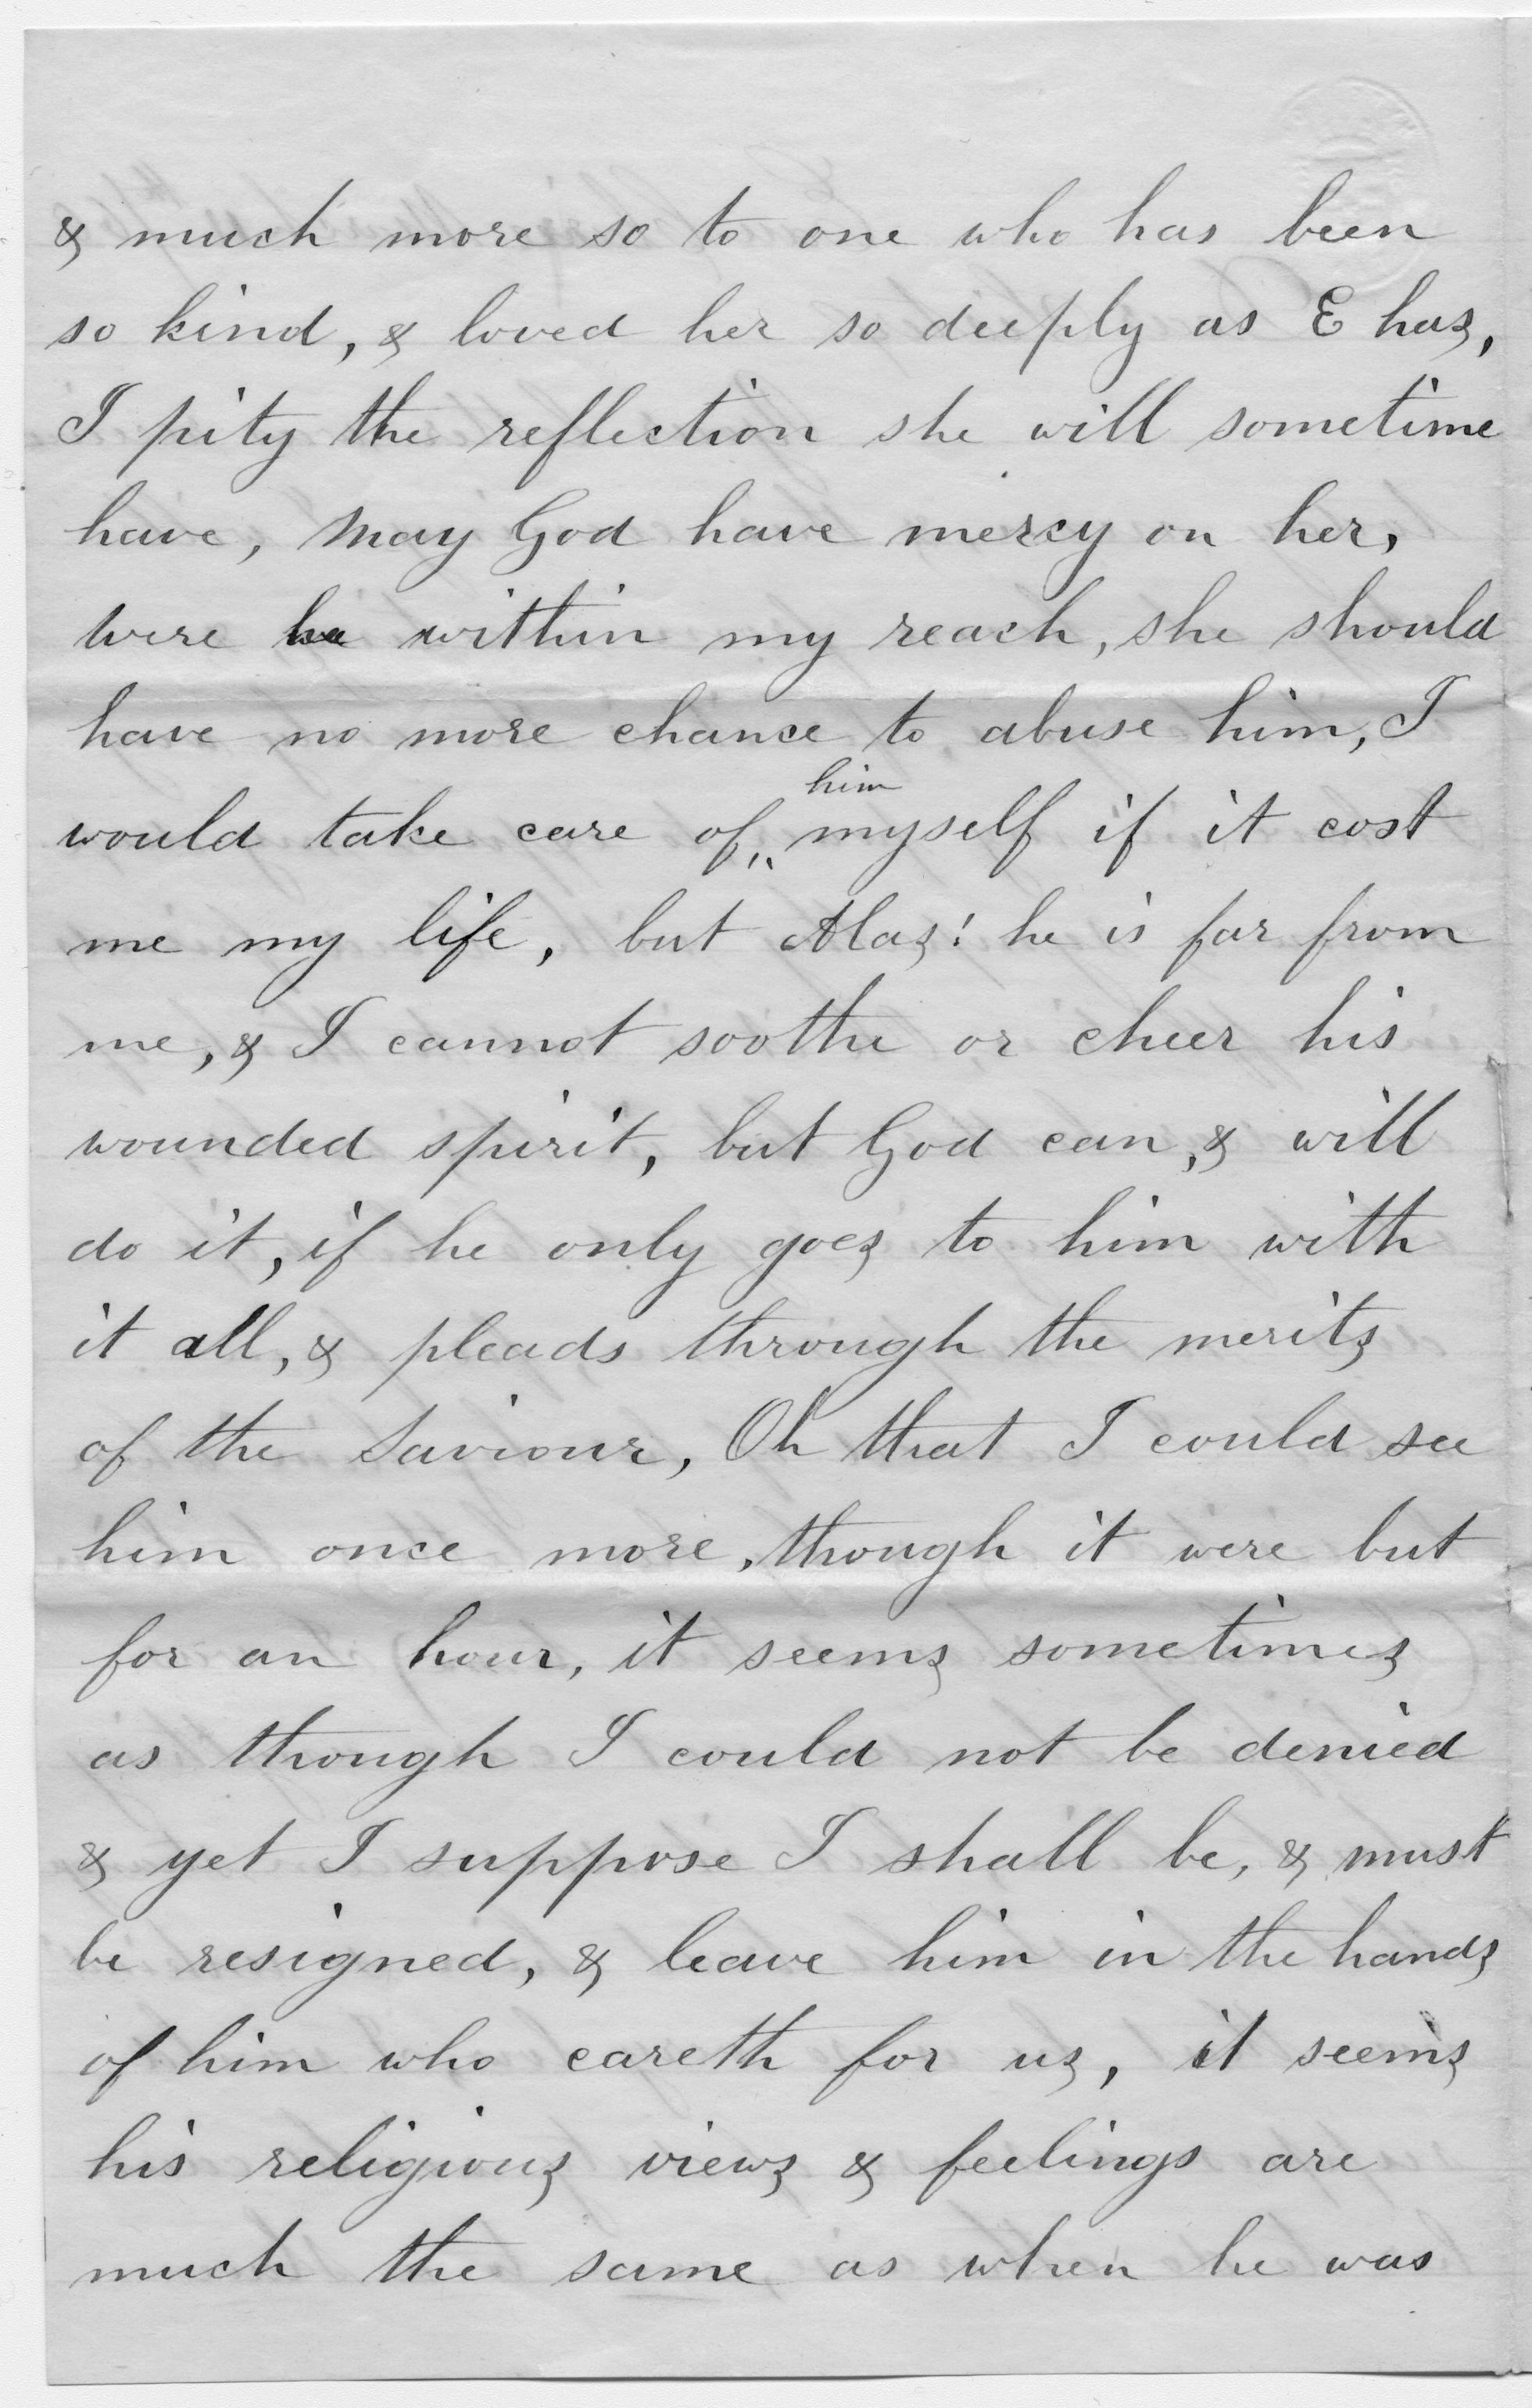 & much more so to one who has been
so kind, & loved her so deeply as E has,
I pity the reflection she will sometime
have, May God have mercy on her,
were he within my reach, she should
have no more chance to abuse him, I
him
would take care of,, myself if it cost
me my life, but Alas! he is far from
me, & I cannot soothe or cheer his
wounded spirit, but God can, & will
do it, if he only goes to him with
it all, & pleads through the merits
of the Saviour, Oh that I could see
him once more, though it were but
for an hour, it seems sometimes
as though I could not be denied
& yet I suppose I shall be, & must
be resigned, & leave him in the hands
of him who careth for us, it seems
his religious views & feelings are
much the same as when he was